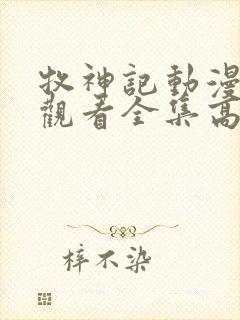 牧神記動漫
觀看全集高
梓不染